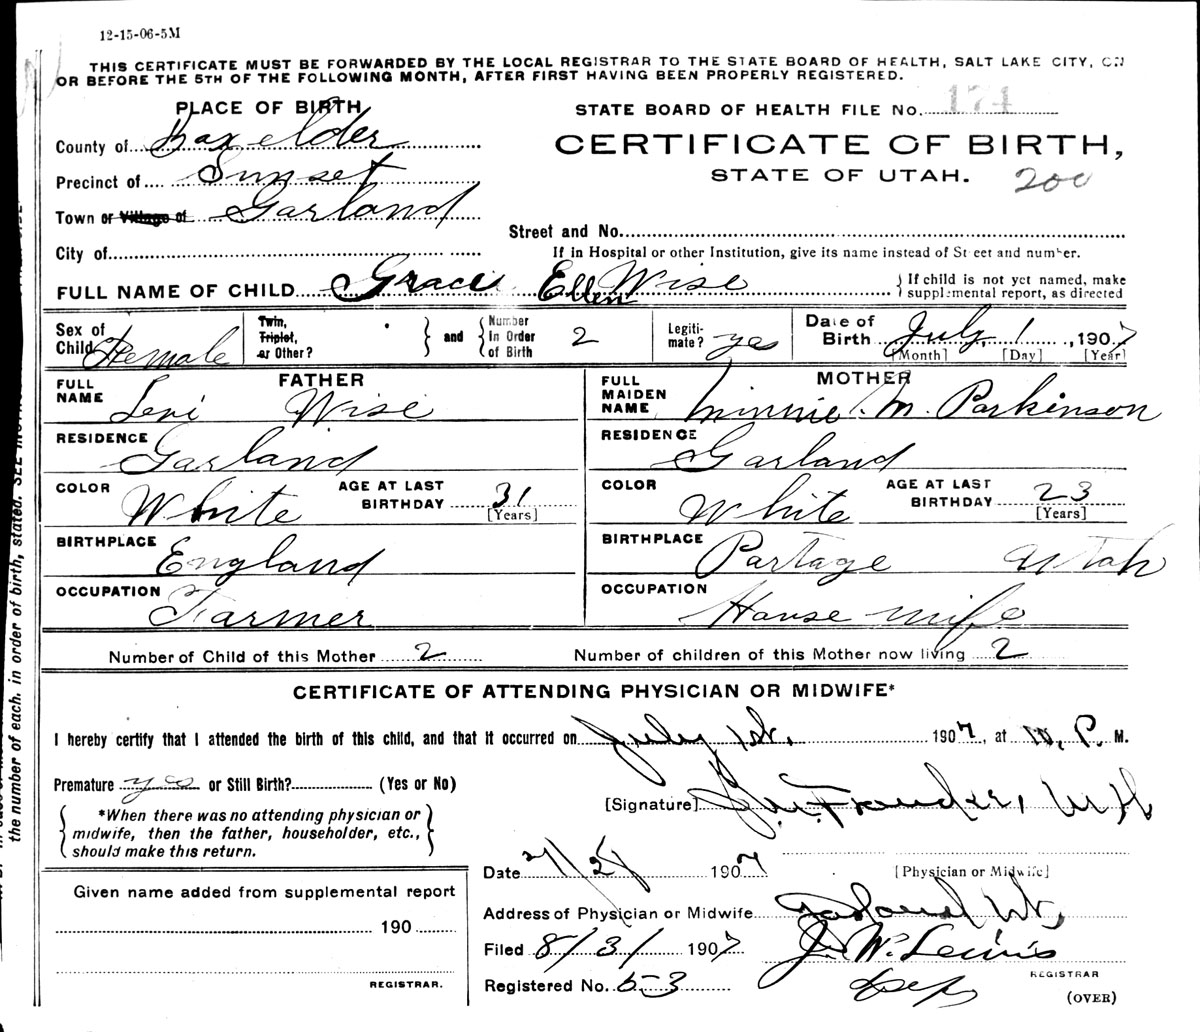 12-15-06-5M
THIS CERTIFICATE MUST BE FORWARDED BY THE LOCAL REGISTRAR TO THE STATE BOARD OF HEALTH, SALT LAKE CITY, ON
OR BEFORE THE 5TH OF THE FOLLOWING MONTH, AFTER FIRST HAVING BEEN PROPERLY REGISTERED.
PLACE OF BIRTH
STATE BOARD OF HEALTH FILE No. 174
County of Box elder
CERTIFICATE OF BIRTH,
Precinct of Sunset
STATE OF UTAH. 200
Town or Village of Garland
Street and No.
City of
If in Hospital or other Institution, give its name instead of Street and number.
FULL NAME OF CHILD Grace Ellen Wise
If child is not yet named, make supplemental report, as directed
Sex of Child Female
Twin, Triplet, or Other?
and
Number In Order of Birth 2
Legitimate? yes
Date of Birth July, 1, 1907
[Month] [Day] [Year]
FATHER
FULL NAME Levi Wise
RESIDENCE Garland
COLOR White
AGE AT LAST BIRTHDAY 31
[Years]
BIRTHPLACE England
OCCUPATION Farmer
MOTHER
FULL MAIDEN NAME Minnie. M. Parkinson
RESIDENCE Garland
COLOR White
AGE AT LAST BIRTHDAY 23
[Years]
BIRTHPLACE Partage Utah
OCCUPATION House wife
Number of Child of this Mother 2
Number of children of this Mother now living 2
CERTIFICATE OF ATTENDING PHYSICIAN OR MIDWIFE*
I hereby certify that I attended the birth of this child, and that it occurred on July 1st, 1907, at P. M.
Premature yes or Still Birth? (Yes or No)
*When there was no attending physician or
midwife, then the father, householder, etc.,
should make this return.
[Signature]
Date 1907
[Physician or Midwife]
Given name added from supplemental report
190
REGISTRAR.
Address of Physician or Midwife Garland Ut,
Filed 8/31 1907 J. W. Lewis
REGISTRAR
Registered No. 53 Dep
(OVER)
the number of each, in order of birth, stated.